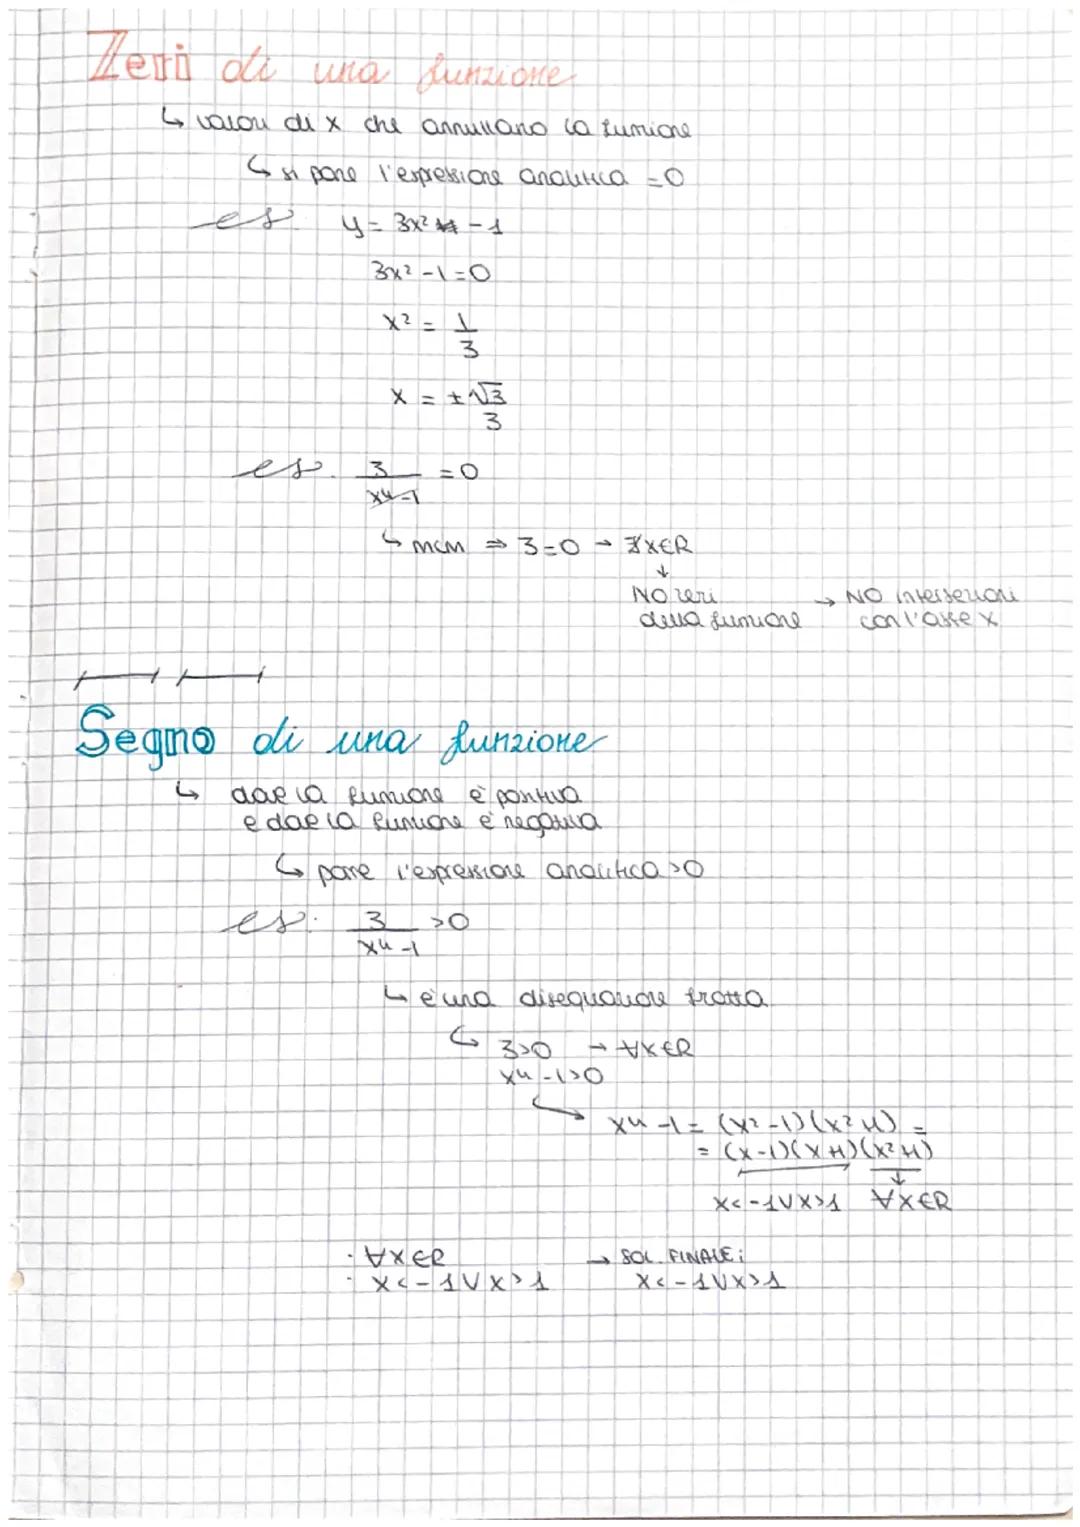 Zeri di una funzione
↳ valori di x che annullano la funzione
↳ si pone l'espressione analitica = 0
es. y = 3x² - 1
3x² - 1 = 0
x² = 1/3
x = ±√3/3
es. 3/(x⁴-1) = 0
↳ mcm ⇒ 3=0 → ∄x∈R
↓
NO zeri → NO intersezioni
della funzione con l'asse x
Segno di una funzione
↳ dove la funzione è positiva
e dove la funzione è negativa
↳ porre l'espressione analitica >0
es: 3/(x⁴-1) >0
↳ è una disequazione fratta
↳ 3>0 → ∀x∈R
x⁴-1>0
→ x⁴-1 = (x²-1)(x²+1) =
= (x-1)(x+1)(x²+1)
↓
x<-1∨x>1 ∀x∈R
· ∀x∈R → SOL. FINALE:
· x<-1∨x>1 x<-1∨x>1